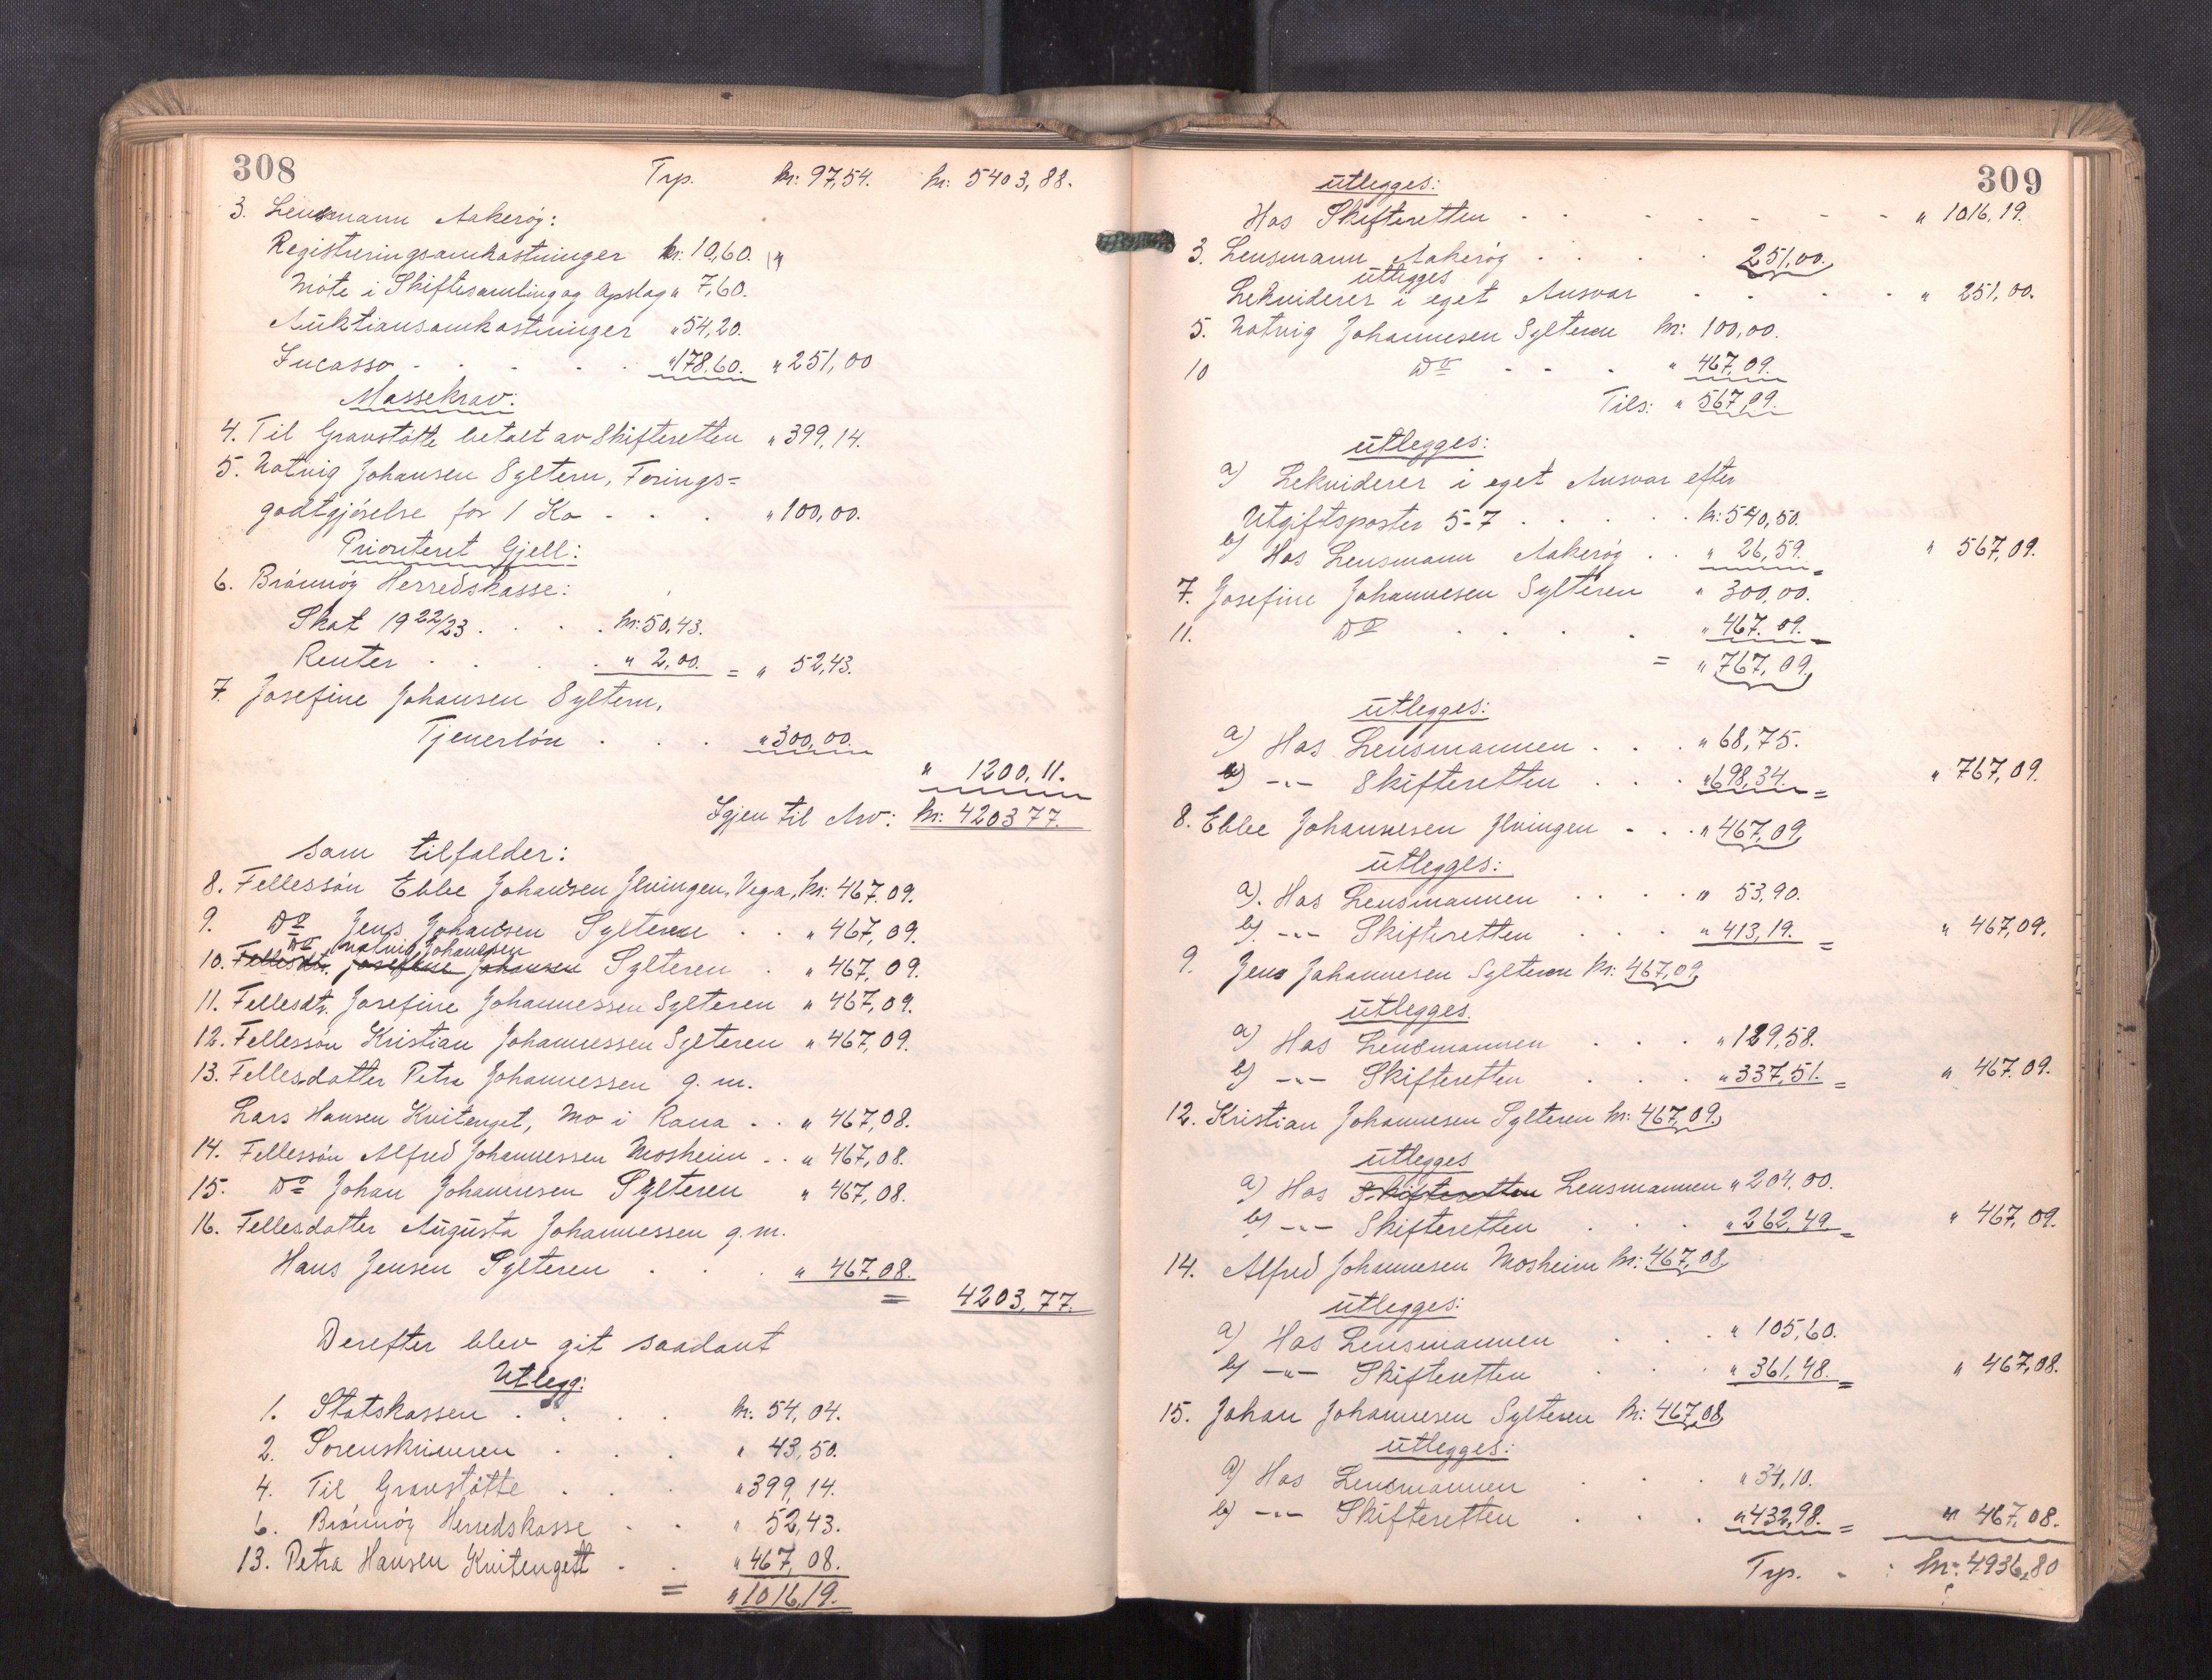 308
Trp. kr: 97,54. kr: 5403,88.
3. Lensmann Aakerøy:
Registreringsomkostninger kr: 10,60.
Møte i Skiftesamling og Opslag " 7,60.
Auktionsomkostninger " 54,20.
Incasso . . . . . " 178,60. " 251,00
Massekrav:
4. Til Gravstøtte betalt av Skifteretten " 399,14.
5. Notvig Johansen Sylteren, Forings=
godtgjørelse for 1 Ko . . . " 100,00.
Prioritert Gjeld:
6. Brønnøy Herredskasse:
Skat 1922/23 . . . . kr: 50,43.
Renter . . . . " 2,00. = " 52,43.
7. Josefine Johansen Sylteren,
Tjenerløn . . . " 300,00.
" 1200,11.
Igjen til Arv: kr: 4203 77.
som tilfalder:
8. Fellessøn Ebbe Johansen Ylvingen, Vega, kr: 467.09.
9. Do Jens Johansen Sylteren . . " 467,09.
Do Notvig Johansen
10. Fellesdtr. Josefine Johansen Sylteren . " 467,09.
11. Fellesdtr. Josefine Johannessen Sylteren " 467,09.
12. Fellessøn Kristian Johannessen Sylteren " 467,09.
13. Fellesdatter Petra Johannessen g. m.
Lars Hansen Kvitenget, Mo i Rana . . " 467,08.
14. Fellessøn Alfred Johannessen Mosheim . . " 467,08.
15. Do Johan Johannesen Sylteren " 467,08.
16. Fellesdatter Augusta Johannessen g. m.
Hans Jensen Sylteren . . . " 467,08.
= 4203,77.
Derefter blev git saadant
Utlegg:
1. Statskassen . . . . kr. 54,04.
2. Sorenskriveren . . . " 43,50.
4. Til Gravstøtte . . . " 399,14.
6. Brønnøy Herredskasse . . " 52,43.
13. Petra Hansen Kvitengett . . " 467,08.
= " 1016,19.
309
utlegges:
Hos Skifteretten . . . . . . . . " 1016,19.
3. Lensmann Aakerøy . . . . 251,00.
utlegges
Lekviderer i eget Ansvar . . . . " 251,00.
5. Notvig Johannesen Sylteren kr: 100,00.
10 Do . . . " 467,09.
Tils: " 567,09.
utlegges:
a) Lekviderer i eget Ansvar efter
Utgiftsposter 5-7 . . . . . kr: 540,50.
b) Hos Lensmann Aakerøy . . " 26,59. " 567,09.
7. Josefine Johannesen Sylteren " 300,00.
11. Do . . . . " 467.09.
= " 767,09.
utlegges:
a) Hos Lensmannen . . . " 68,75.
b) -"- Skifteretten . . . " 698,34. = " 767,09.
8. Ebbe Johannesen Ylvingen . . . " 467,09.
utlegges:
a). Hos Lensmannen . . . . " 53,90.
b). -"- Skifteretten . . . " 413,19. = " 467,09.
9. Jens Johannesen Sylteren kr: 467,09.
utlegges.
a) Hos Lensmannen . . . " 129,58.
b) -"- Skifteretten . . . " 337,51. = " 467.09.
12. Kristian Johannesen Sylteren kr: 467,09.
utlegges
a) Hos Skifteretten Lensmannen " 204.00.
b) -"- Skifteretten . . . " 262,49. = " 467,09.
14. Alfred Johannesen Mosheim kr: 467,08.
utlegges:
a) Hos Lensmannen . . . " 105,60.
b) -"- Skifteretten . . . " 361,48. = " 467,08.
15. Johan Johannesen Sylteren kr: 467,08.
utlegges:
a) Hos Lensmannen . . . " 34,10.
b) -"- Skifteretten . . . " 432,98. = " 467,08.
Trp. . : kr: 4936,80